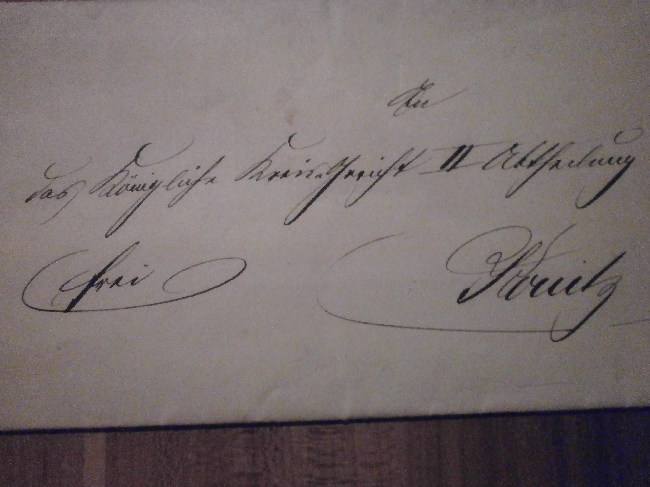 An
das Königliche Kreis-Gericht II Abtheilung
frei
Konitz